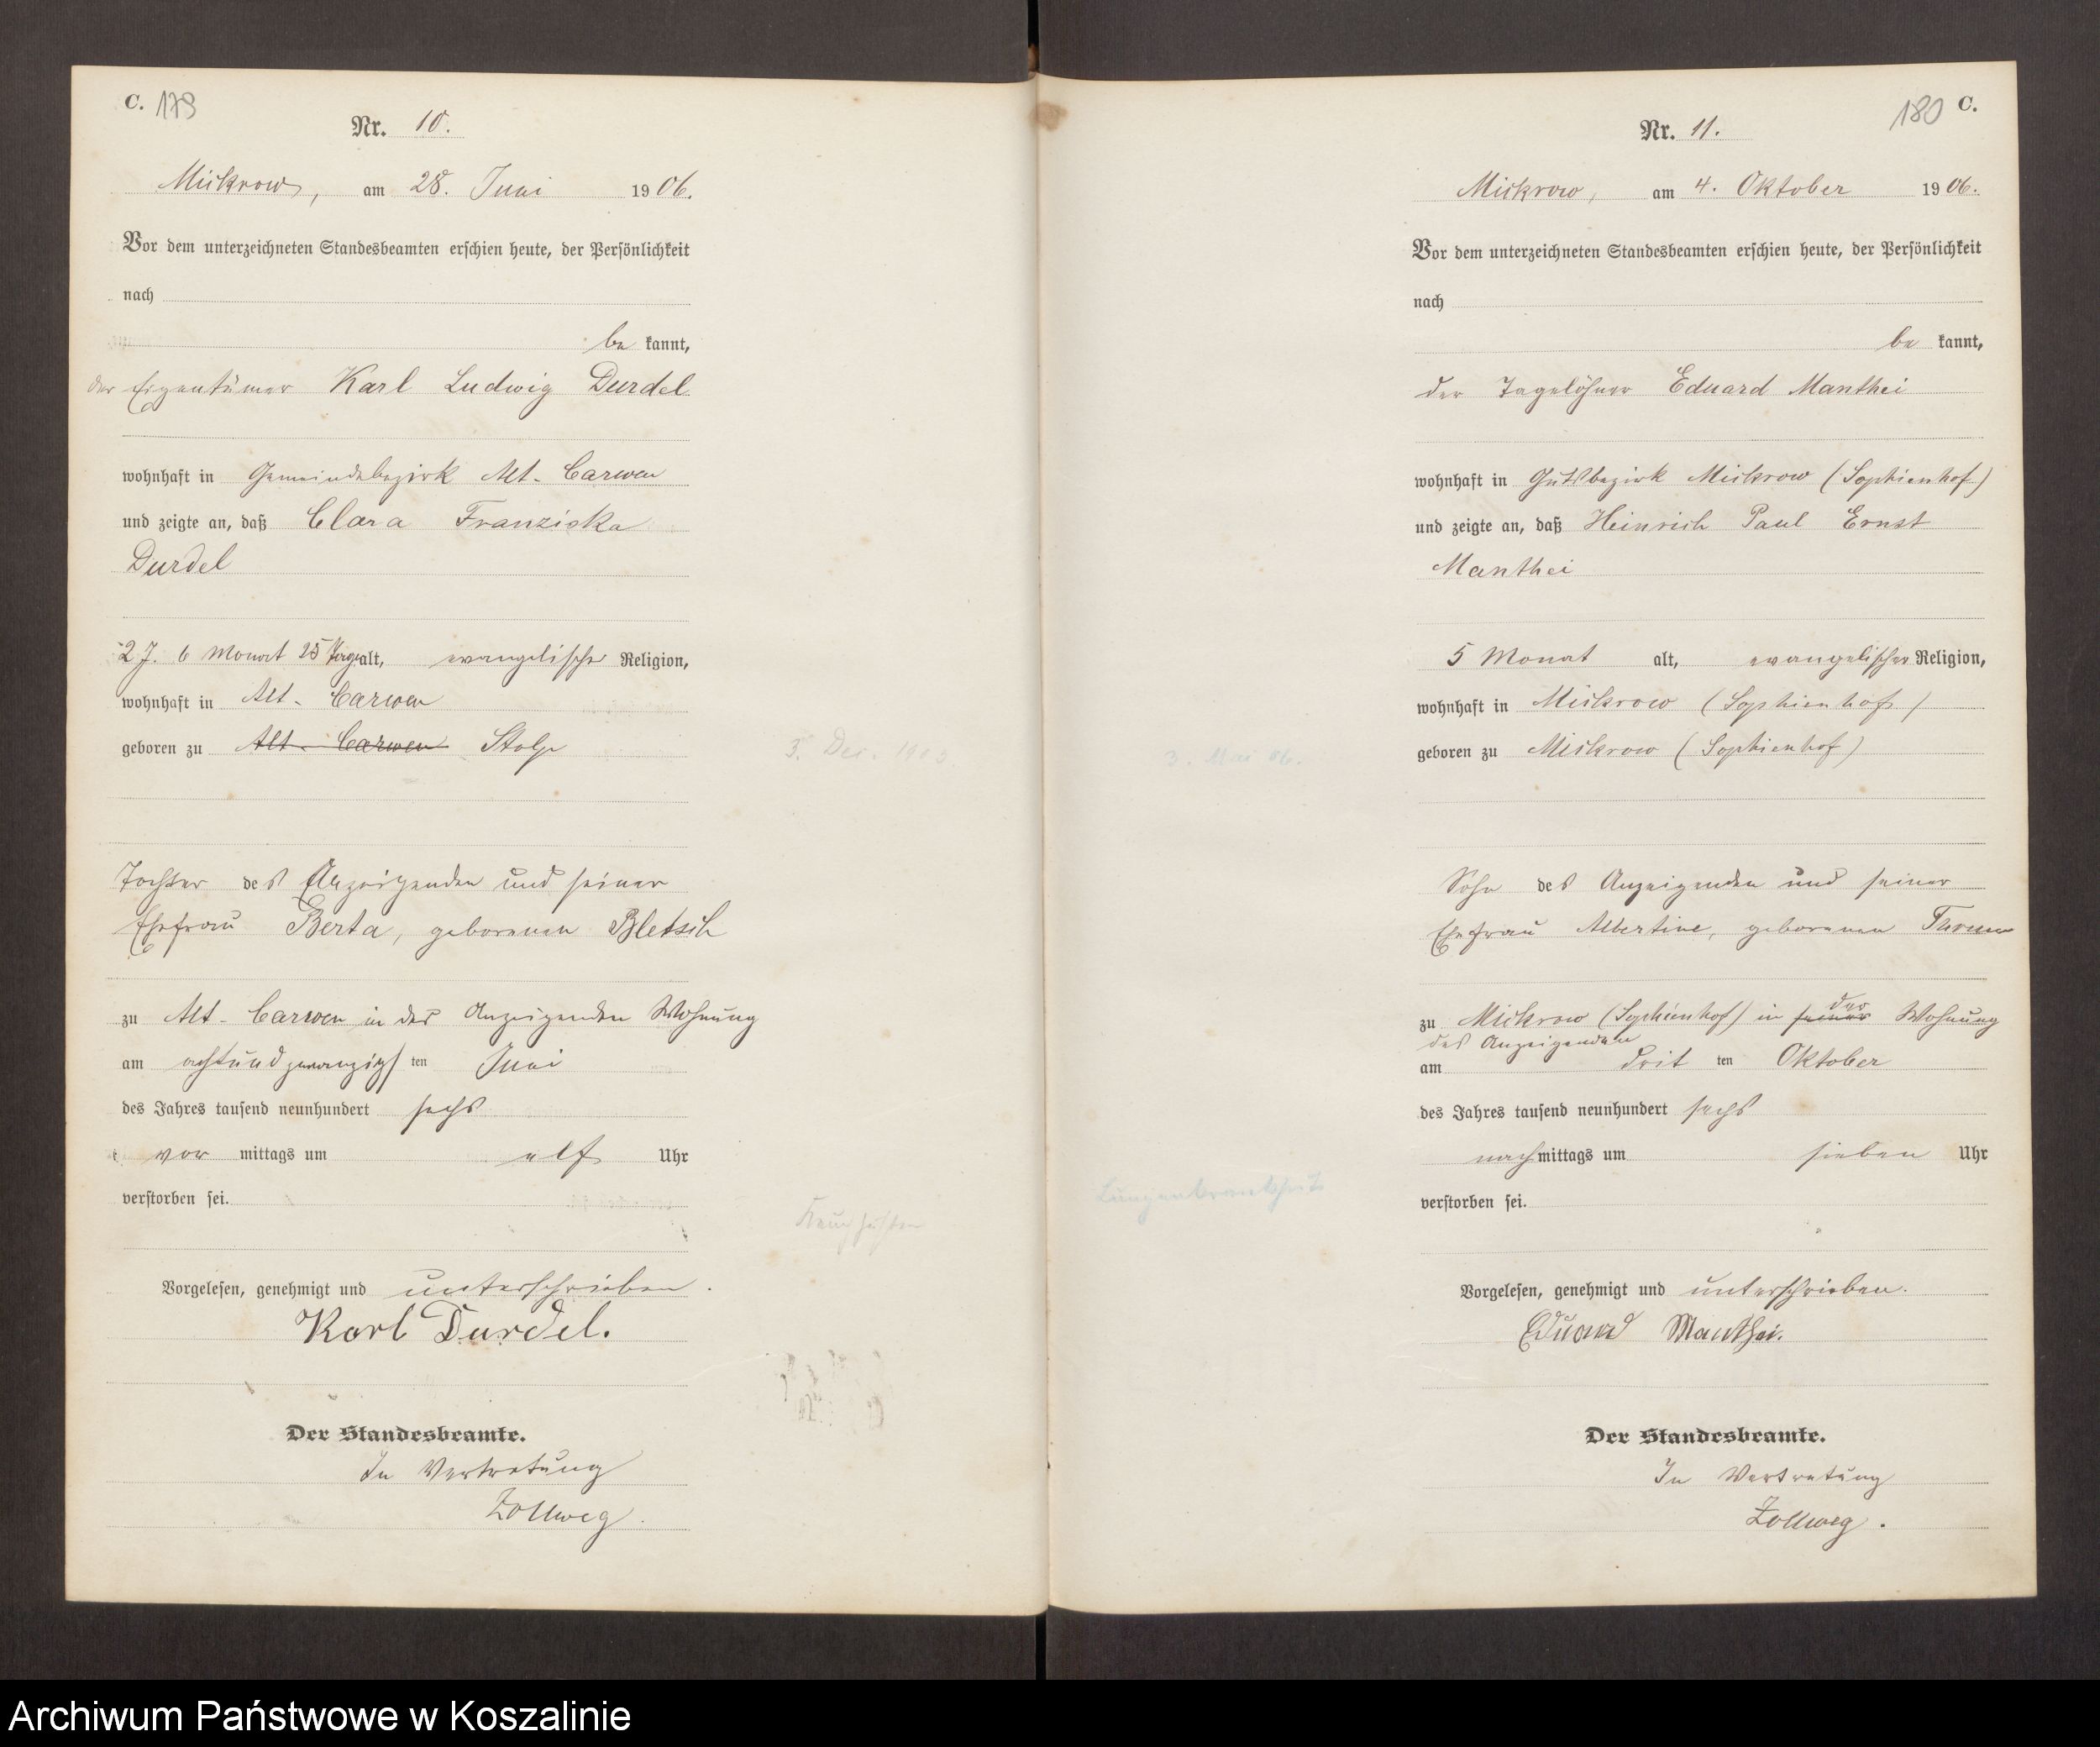 C. 179
Nr. 10.
Mickrow, am 28. Juni 1906.
Vor dem unterzeichneten Standesbeamten erschien heute, der Persönlichkeit
nach
be kannt,
der Eigentümer Karl Ludwig Durdel
wohnhaft in Gemeindebezirk Alt-Carwen
und zeigte an, daß Clara Franziska
Durdel
2 J. 6 Monat 25 Tage alt, evangelischer Religion,
wohnhaft in Alt-Carwen
geboren zu Alt-Carwen Stolp
3. Dez. 1903.
Tochter des Anzeigenden und seiner
Ehefrau Berta, geborenen Bletsch
zu Alt-Carwen in des Anzeigenden Wohnung
am achtundzwanzigsten Juni
des Jahres tausend neunhundert sechs
vor mittags um elf Uhr
verstorben sei.
Keuchhusten
Vorgelesen, genehmigt und unterschrieben.
Karl Durdel.
Der Standesbeamte.
In Vertretung
Zollweg.
180 C.
Nr. 11.
Mickrow, am 4. Oktober 1906.
Vor dem unterzeichneten Standesbeamten erschien heute, der Persönlichkeit
nach
be kannt,
der Tagelöhner Eduard Manthei
wohnhaft in Gutsbezirk Mickrow (Sophienhof)
und zeigte an, daß Heinrich Paul Ernst
Manthei
5 Monat alt, evangelischer Religion,
wohnhaft in Mickrow (Sophienhof)
geboren zu Mickrow (Sophienhof)
3. Mai 06.
Sohn des Anzeigenden und seiner
Ehefrau Albertine, geborenen
zu Mickrow (Sophienhof) in seiner der Wohnung
des Anzeigenden
am dritten Oktober
des Jahres tausend neunhundert sechs
nachmittags um sieben Uhr
verstorben sei.
Lungenkrankheit
Vorgelesen, genehmigt und unterschrieben.
Eduard Manthei.
Der Standesbeamte.
In Vertretung
Zollweg.
Archiwum Państwowe w Koszalinie